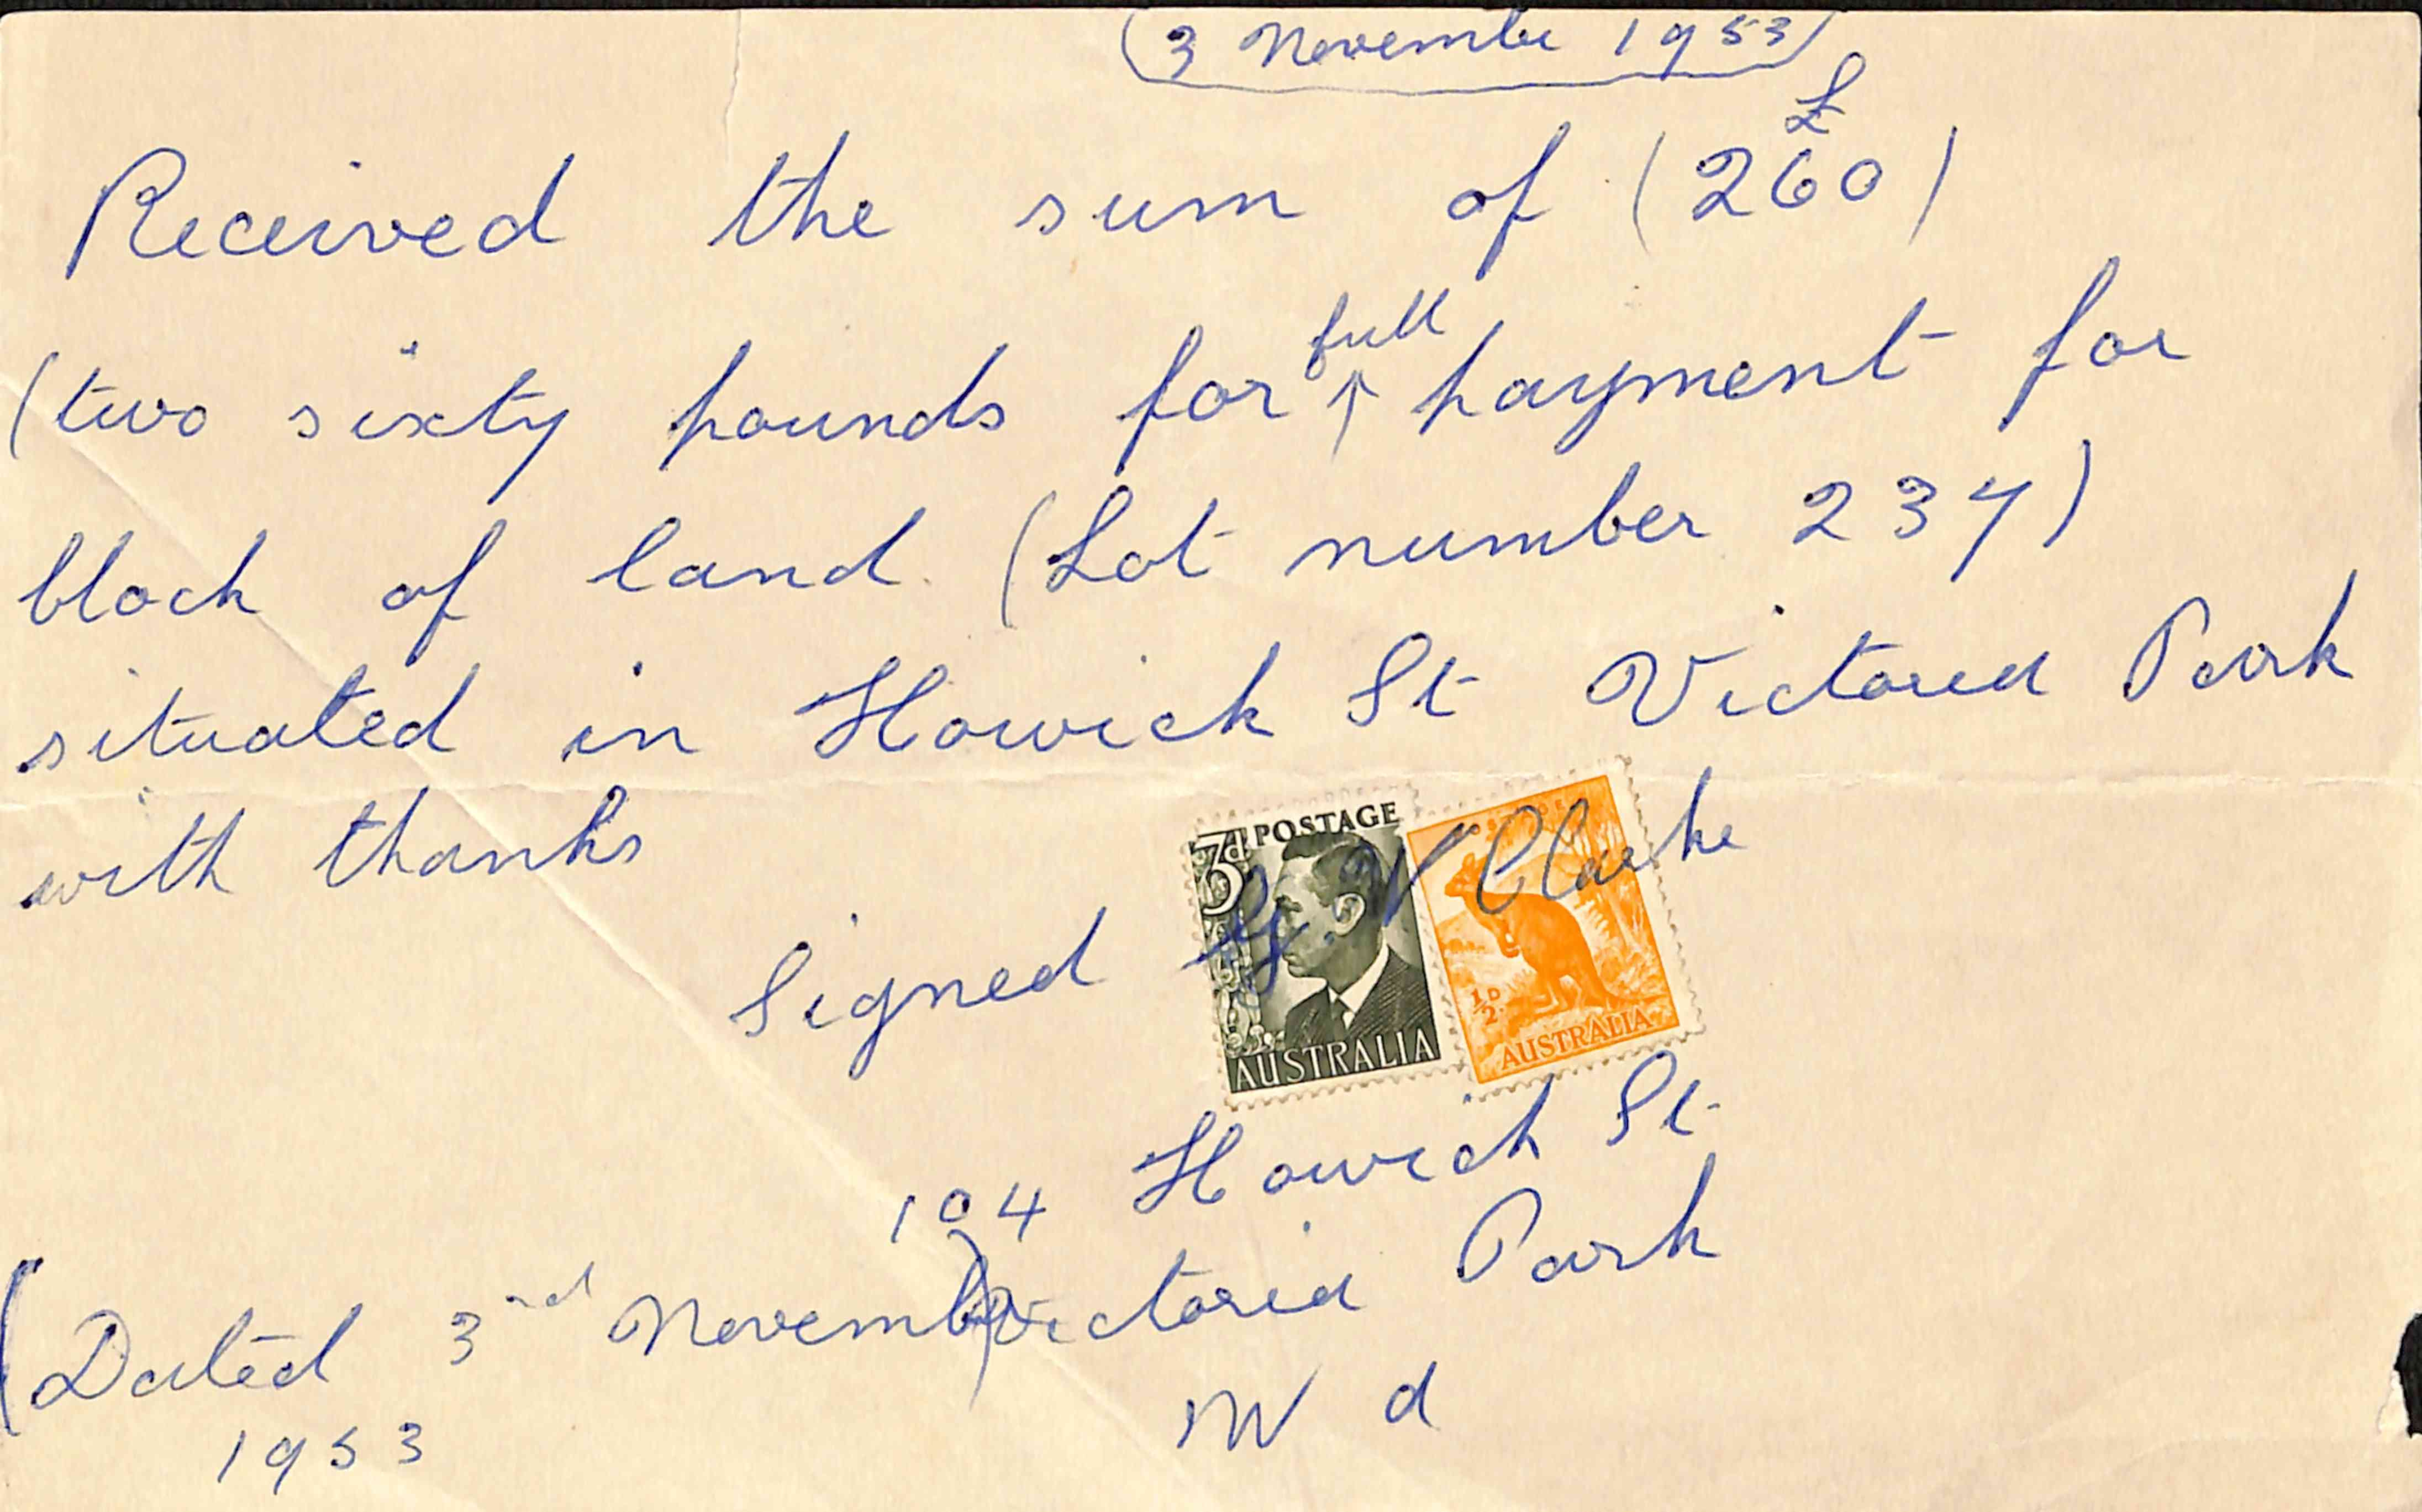 (3 November 1953)
£
Received the sum of (260)
full
(two sixty pounds for ↑ payment for
block of land. (Lot number 237)
situated in Howick St Victoria Park
with thanks
3d POSTAGE
AUSTRALIA
½D.
AUSTRALIA
Signed G. V Clarke
104 Howick St
Victoria Park
W a
(Dated 3rd Novemb)
1953